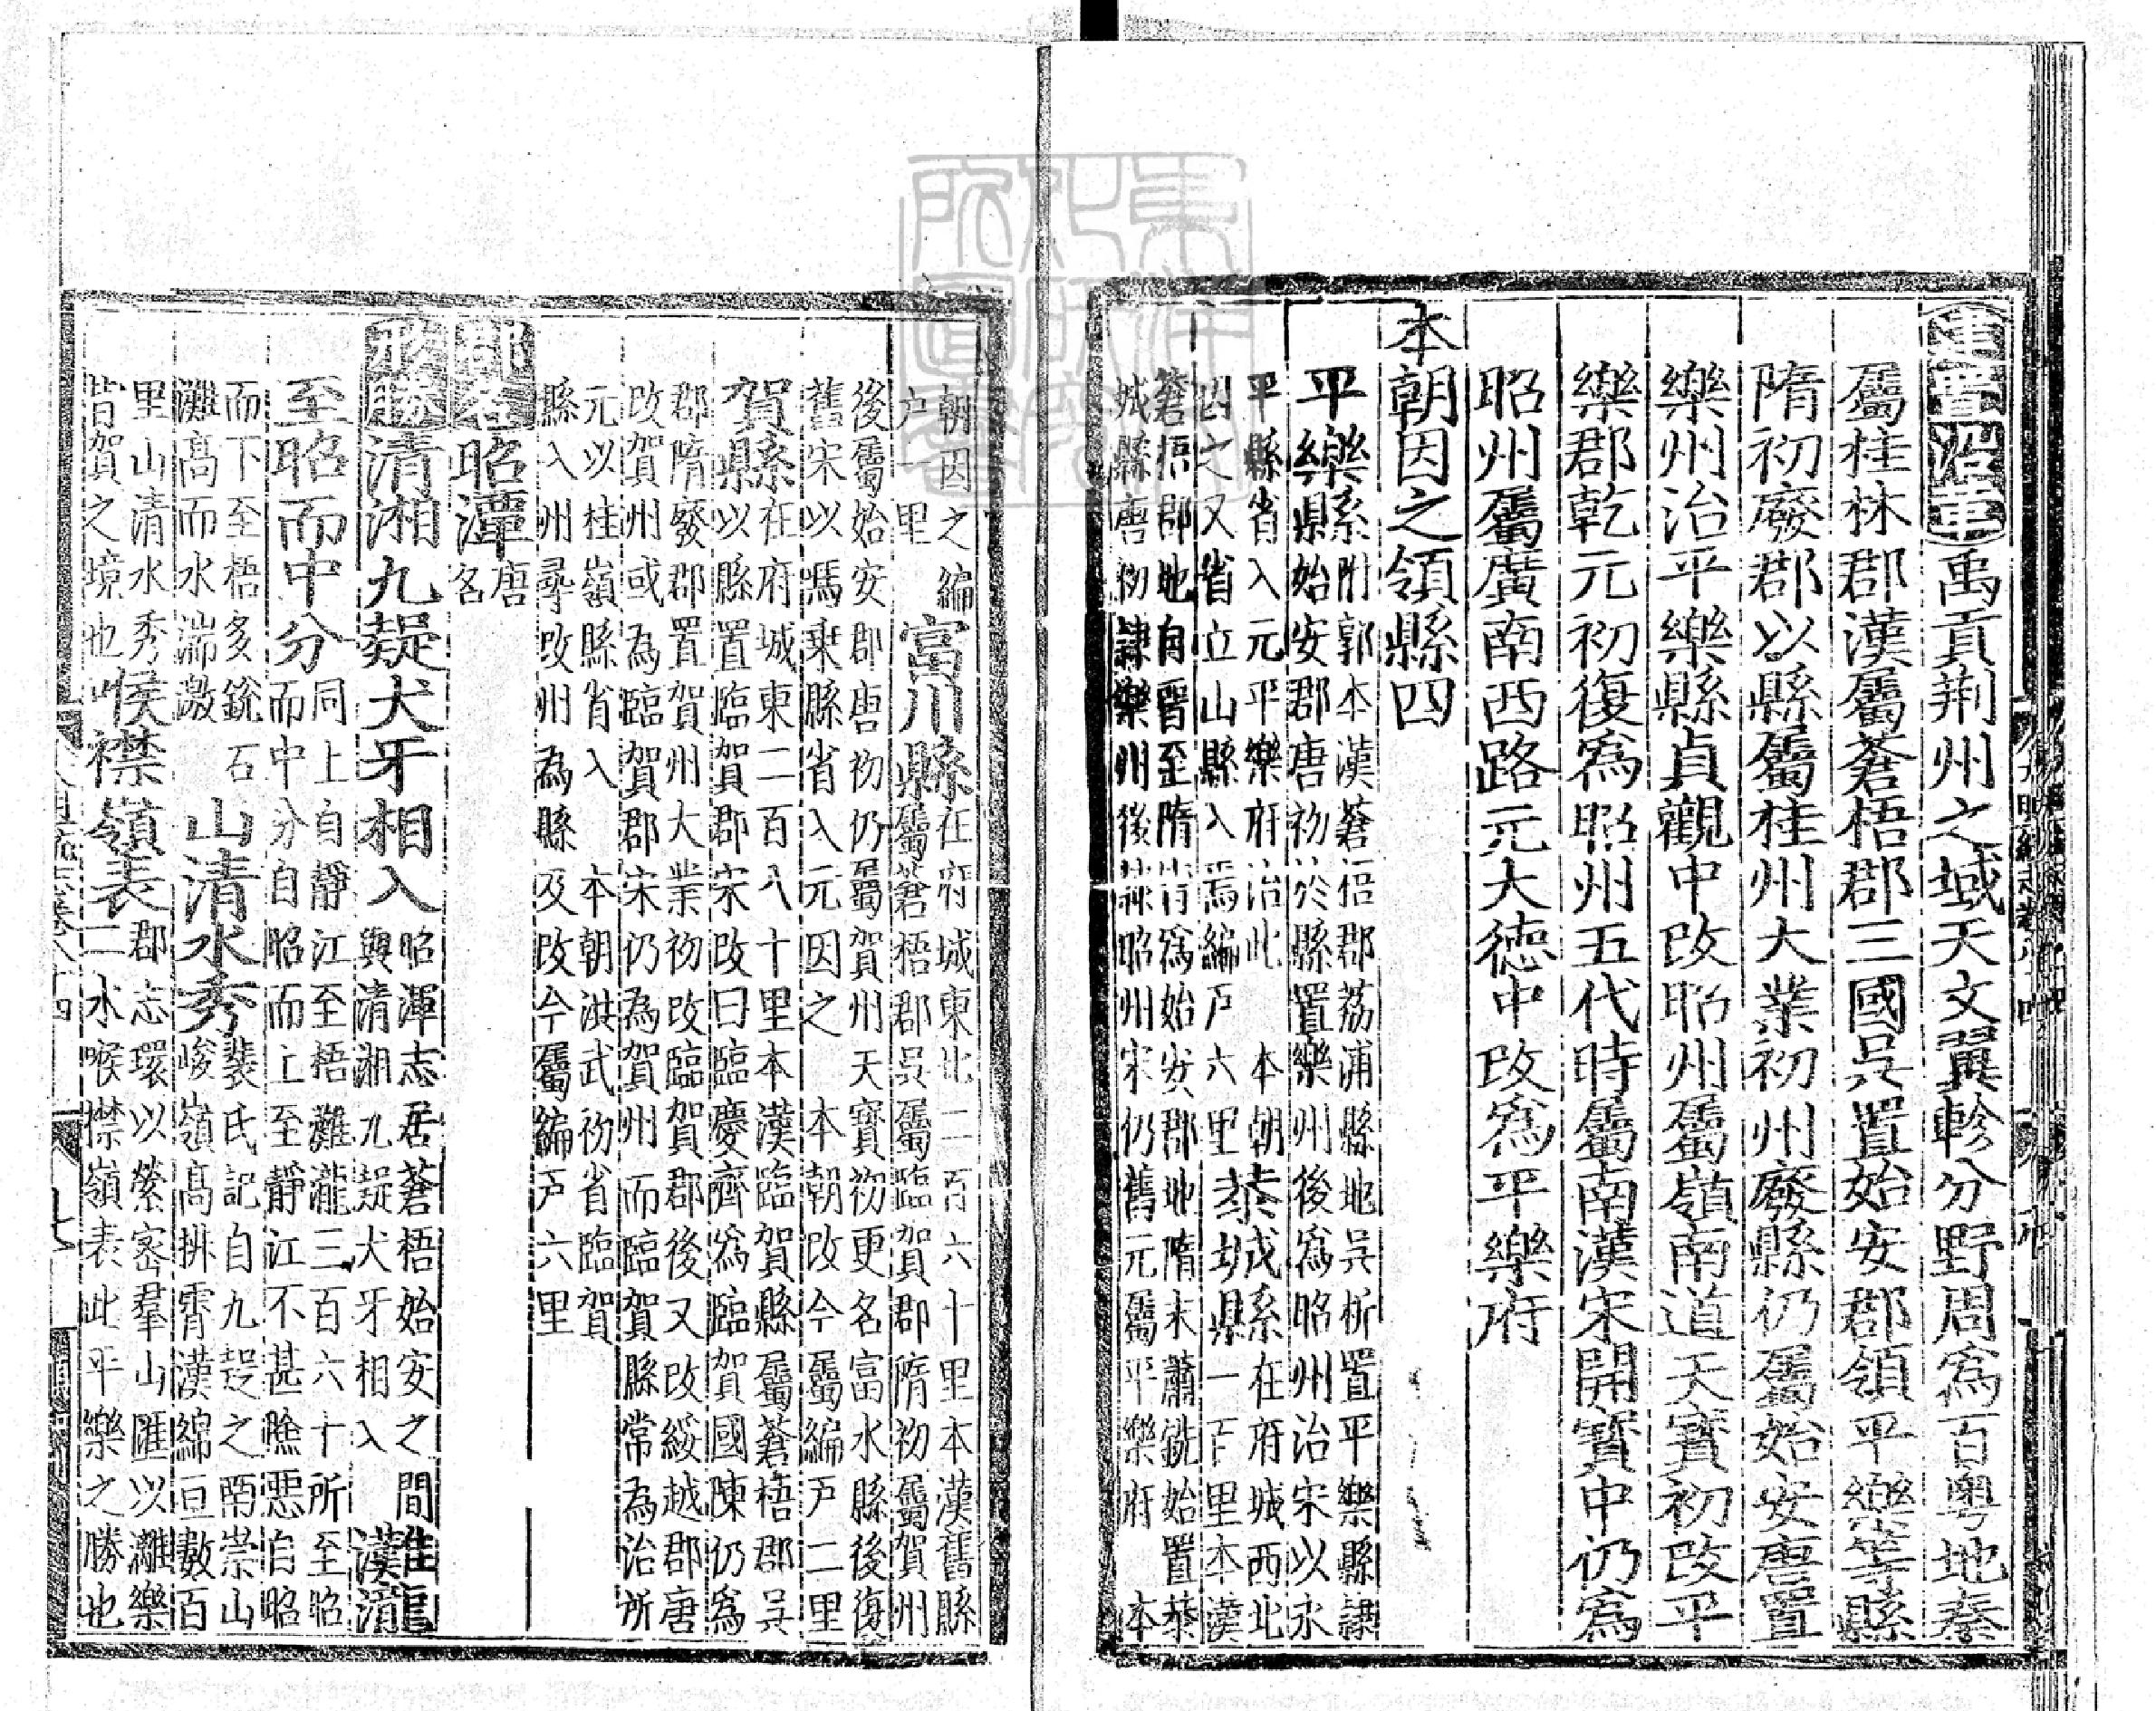 建置沿革禹貢荆州之域天文翼軫分野周為百粤地秦
屬桂林郡漢屬蒼梧郡三國吳置始安郡領平樂等縣
隋初廢郡以縣屬桂州大業初州廢縣仍屬始安唐置
樂州治平樂縣貞觀中改昭州屬嶺南道天寳初改平
樂郡乾元初復為昭州五代時屬南漢宋開寳中仍為
昭州屬廣南西路元大德中改為平樂府
本朝因之領縣四
平樂縣附郭本漢蒼梧郡荔浦縣地吳析置平樂縣隷
始安郡唐初於縣置樂州後為昭州治宋以永
平縣省入元平樂府治此 本朝
因之又省立山縣入焉編户六里
恭城縣在府城西北
一百里本漢
蒼梧郡地自晋至隋皆為始安郡地隋末蕭銑始置恭
城縣唐初隷樂州後隷昭州宋仍舊元屬平樂府 本
朝因之編
户一里
富川縣在府城東北二百六十里本漢舊縣
屬蒼梧郡吳屬臨賀郡隋初屬賀州
後屬始安郡唐初仍屬賀州天寳初更名富水縣後復
舊宋以馮乗縣省入元因之 本朝改今屬編户二里
賀縣在府城東二百八十里本漢臨賀縣屬蒼梧郡吳
以縣置臨賀郡宋改曰臨慶齊為臨賀國陳仍為
郡隋廢郡置賀州大業初改臨賀郡後又改綏越郡唐
改賀州或為臨賀郡宋仍為賀州而臨賀縣常為治所
元以桂嶺縣省入 本朝洪武初省臨賀
縣入州尋改州為縣又改今屬編户六里
郡名昭潭唐
名
形勝清湘九疑犬牙相入昭潭志居蒼梧始安之間
與清湘九疑犬牙相入
灘瀧
至昭而中分同上自靜江至梧灘瀧三百六十所至昭
而中分自昭而上至靜江不甚險惡自昭
而下至梧多銳石
灘高而水湍激
山清水秀裴氏記自九疑之南崇山
峻嶺高排霄漢綿亘數百
里山清水秀
昔賀之境也
喉襟嶺表郡志環以縈宻羣山匯以灕樂
二水喉襟嶺表此平樂之勝也